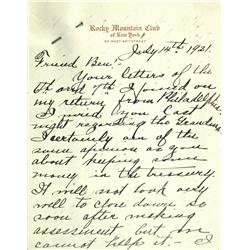 Rocky Mountain Club
of New York
65 West 44th Street
July 14th 1921.
Friend Ben:
Your letters of the
6th and 7th I found on
my return from Philadelphia
I wired you last
night regarding the
I certainly am of the
same opinion as you
about keeping some
money in the treasury.
It will not look very
well to close down so
soon after making
assessment but we
cannot help it. I